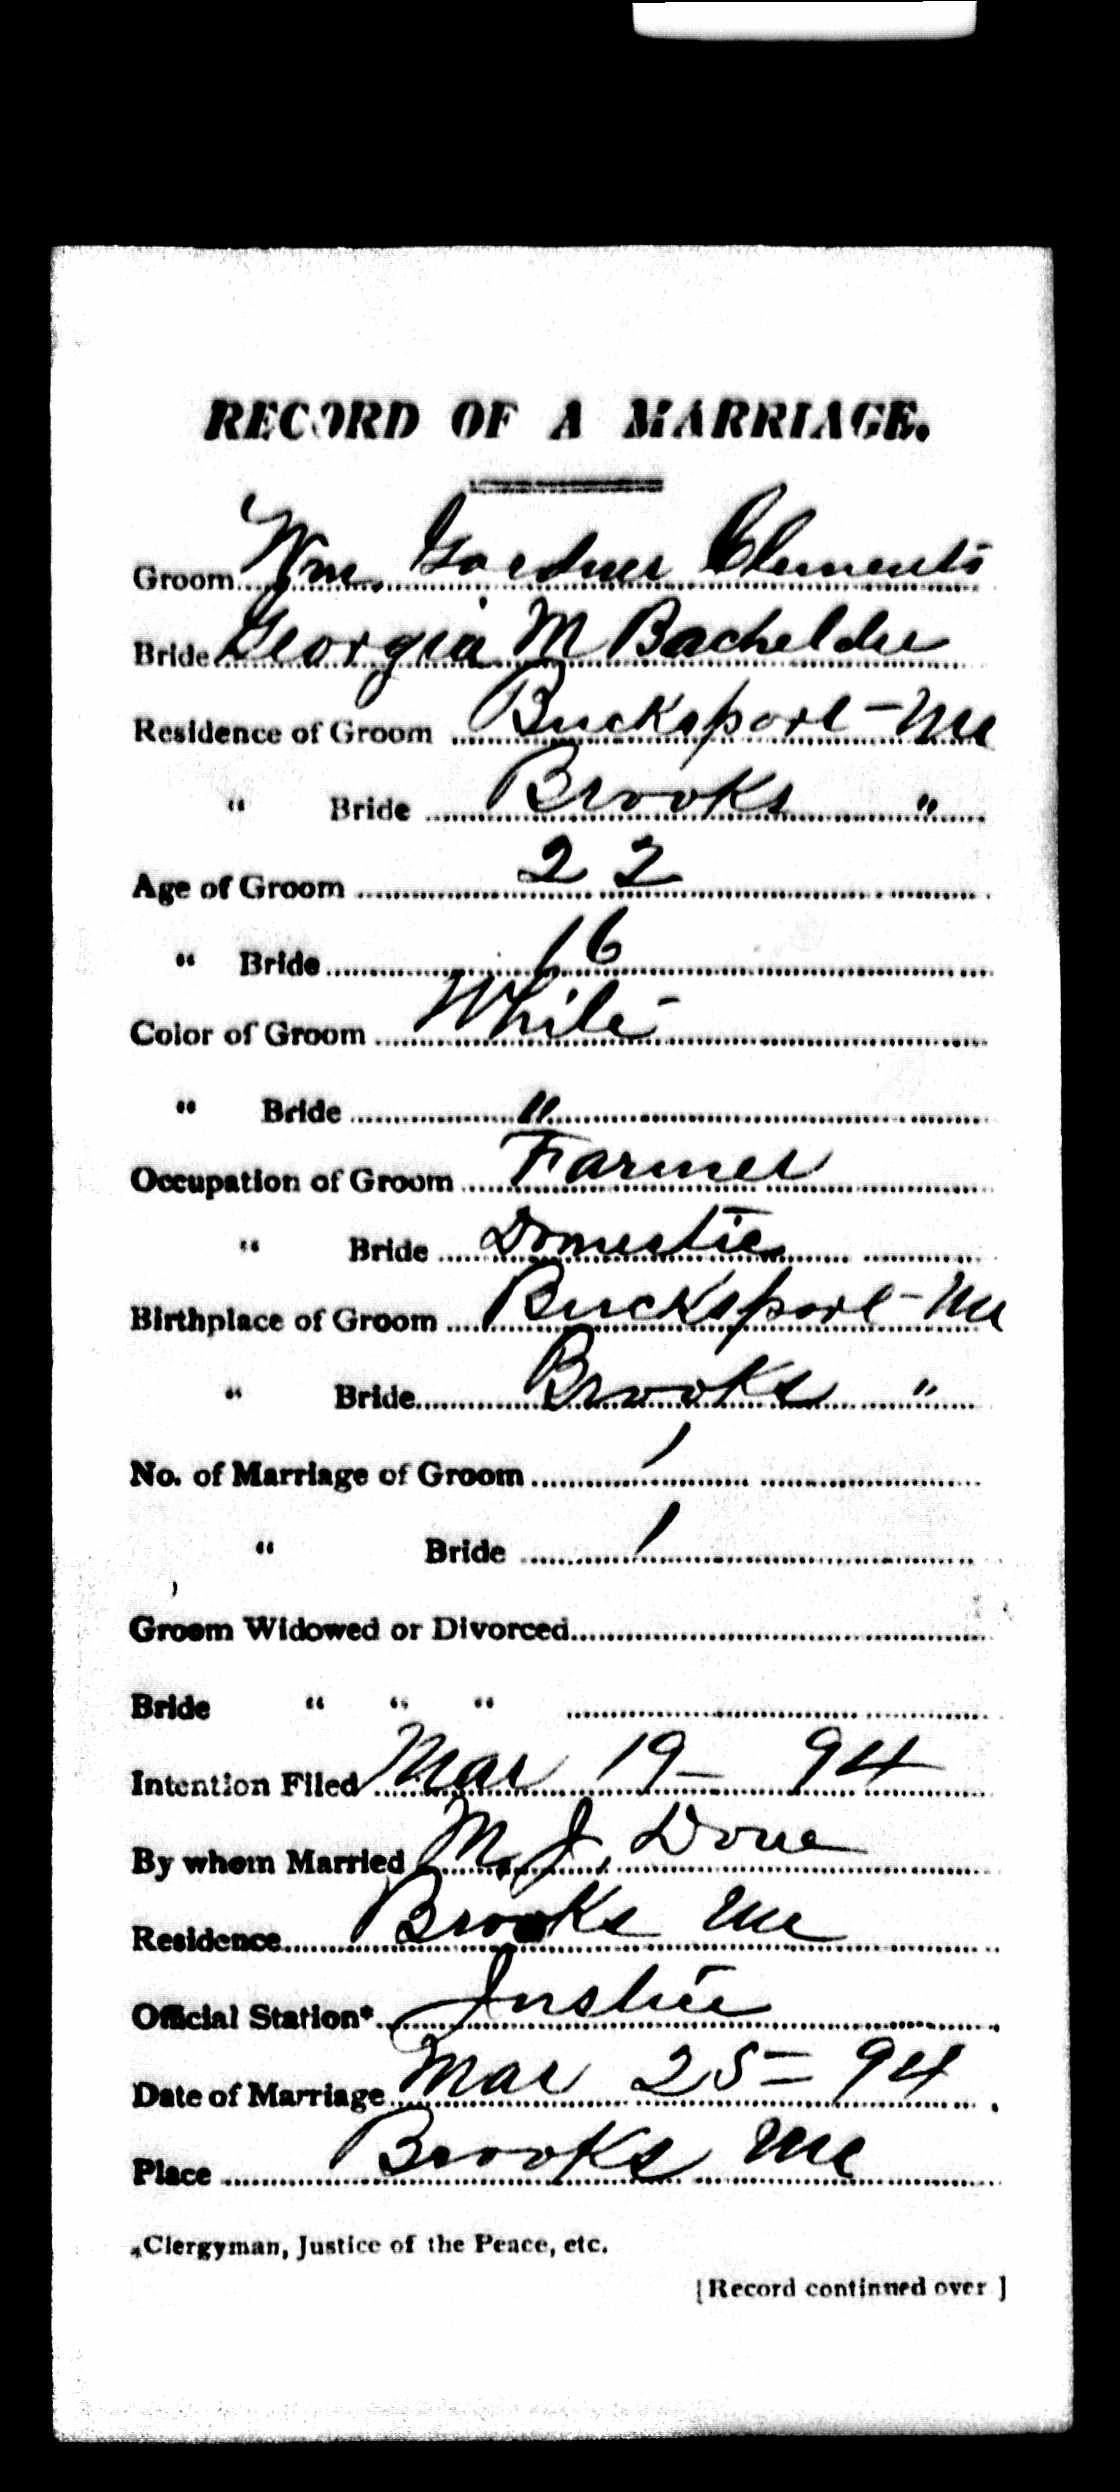 RECORD OF A MARRIAGE.
Groom Wm. Gardner Clements
Bride Georgia M Bachelder
Residence of Groom Bucksport - Me
" Bride Brooks "
Age of Groom 22
" Bride 16
Color of Groom White
" Bride "
Occupation of Groom Farmer
" Bride Domestic
Birthplace of Groom Bucksport - Me
" Bride Brooks "
No. of Marriage of Groom 1
" Bride 1
Groom Widowed or Divorced
Bride " " "
Intention Filed Mar 19 - 94
By whom Married M. J. Dow
Residence Brooks Me
Official Station* Justice
Date of Marriage Mar 25 = 94
Place Brooks Me
*Clergyman, Justice of the Peace, etc.
[Record continued over]